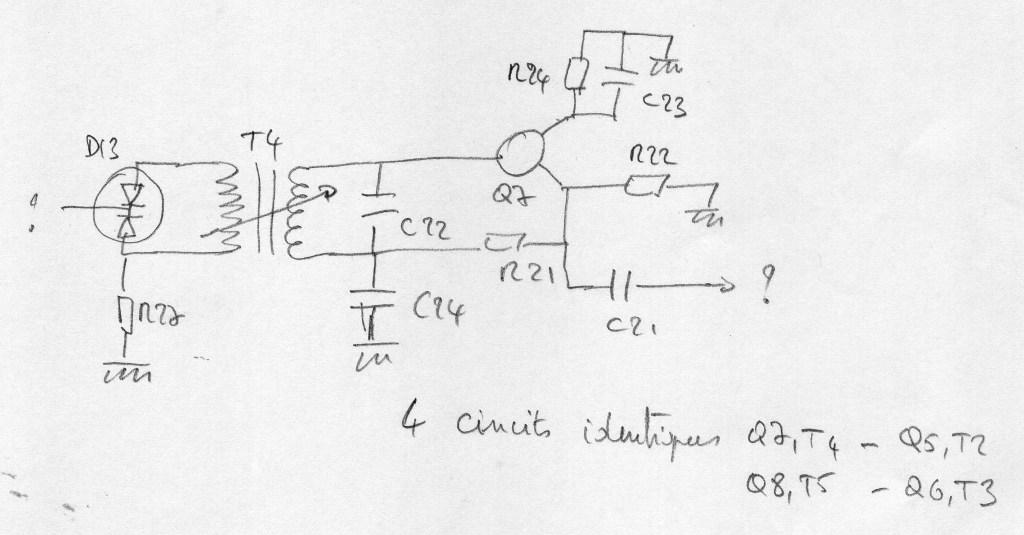 R24
C23
D13
T4
R22
Q7
?
C22
R21
?
R27
C24
C21
4 circuits identiques Q7,T4 - Q5,T2
Q8,T5 - Q6,T3